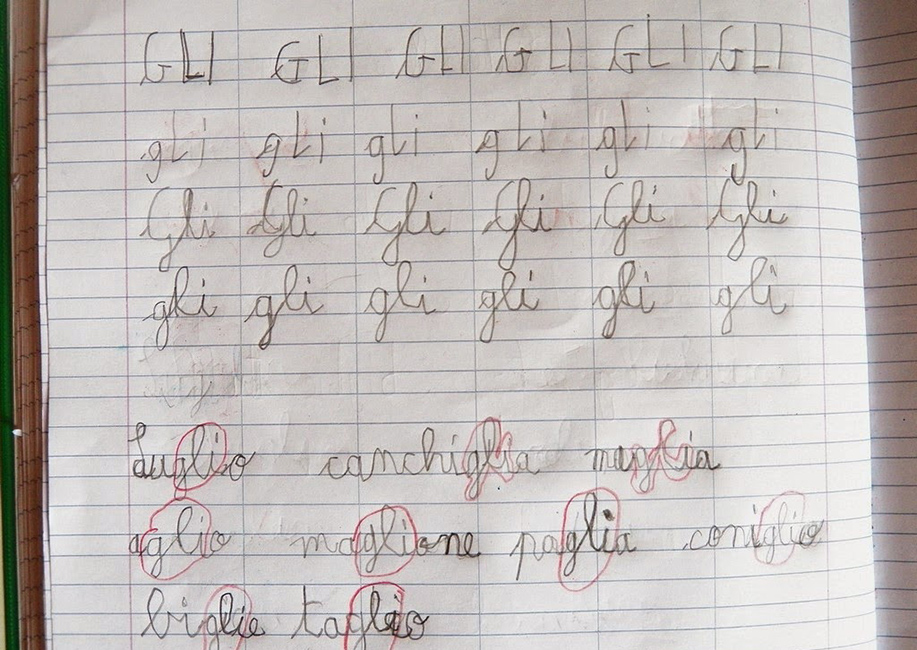 GLI GLI GLI GLI GLI GLI
gLi gLi gLi gLi gLi gLi
Gli Gli Gli Gli Gli Gli
gli gli gli gli gli gli
Luglio canchiglia maglia
aglio maglione paglia coniglio
biglie taglio